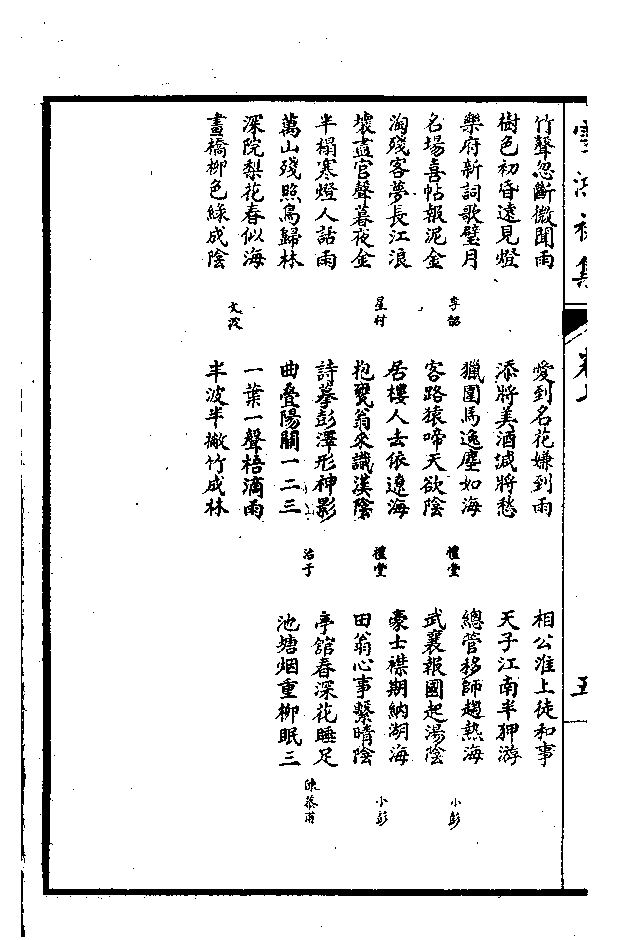 雪鴻初集
卷上
五
竹聲忽斷微聞雨
樹色初昏遠見燈
樂府新詞歌璧月
名場喜帖報泥金
李韶
淘殘客夢長江浪
壞盡官聲暮夜金
星村
半榻寒燈人話雨
萬山殘照鳥歸林
深院梨花春似海
畫橋柳色綠成陰
文波
愛到名花嫌到雨
添將美酒減將愁
獵圍馬逸塵如海
客路猿啼天欲陰
禮堂
居樓人去依遼海
抱甕翁來識漢陰
禮堂
詩摹彭澤形神影
曲疊陽關一二三
治于
一葉一聲梧滴雨
半波半撇竹成林
相公淮上徒和事
天子江南半狎游
總管移師趨熱海
武襄報國起湯陰
小彭
豪士襟期納湖海
田翁心事繫晴陰
小彭
亭館春深花睡足
池塘烟重柳眠三
陳慕